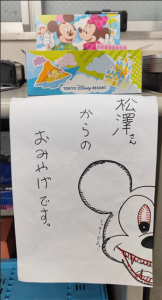 TOKYO DISNEY RESORT
松澤さん
からの
おみやげです。